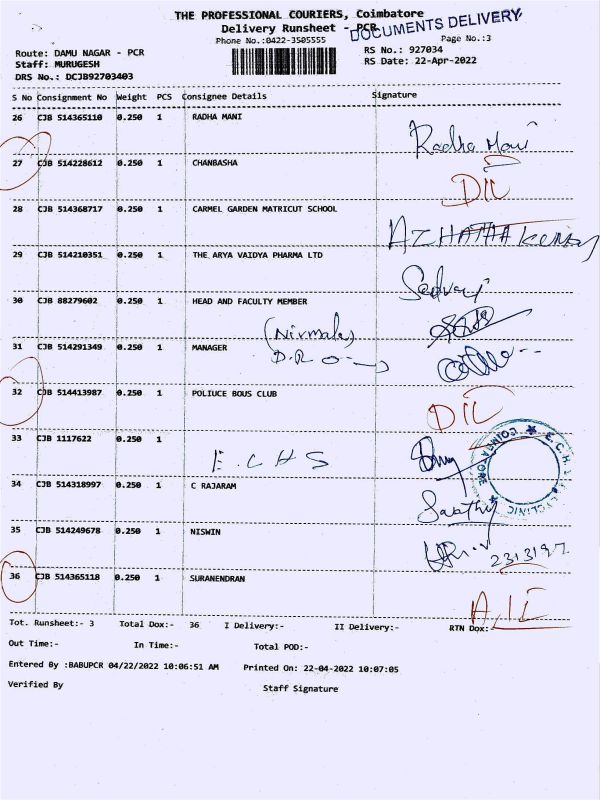 THE PROFESSIONAL COURIERS, Coimbatore
Delivery Runsheet - PCR
DOCUMENTS DELIVERY
Phone No.:0422-3505555
Page No.:3
Route: DAMU NAGAR - PCR
RS No.: 927034
Staff: MURUGESH
RS Date: 22-Apr-2022
DRS No.: DCJB92703403
S No Consignment No Weight PCS Consignee Details Signature
26 CJB 514365110 0.250 1 RADHA MANI
Radha Mani
27 CJB 514228612 0.250 1 CHANBASHA
DIL
28 CJB 514368717 0.250 1 CARMEL GARDEN MATRICUT SCHOOL
29 CJB 514210351 0.250 1 THE ARYA VAIDYA PHARMA LTD
30 CJB 88279602 0.250 1 HEAD AND FACULTY MEMBER
(Nirmala)
31 CJB 514291349 0.250 1 MANAGER
D.R.O
32 CJB 514413987 0.250 1 POLIUCE BOUS CLUB
DIL
33 CJB 1117622 0.250 1
E.C.H.S
COIMBATORE ★ E.C.H.S
34 CJB 514318997 0.250 1 C RAJARAM
35 CJB 514249678 0.250 1 NISWIN
36 CJB 514365118 0.250 1 SURANENDRAN
Tot. Runsheet:- 3 Total Dox:- 36 I Delivery:- II Delivery:- RTN Dox:-
Out Time:- In Time:- Total POD:-
Entered By :BABUPCR 04/22/2022 10:06:51 AM Printed On: 22-04-2022 10:07:05
Verified By Staff Signature